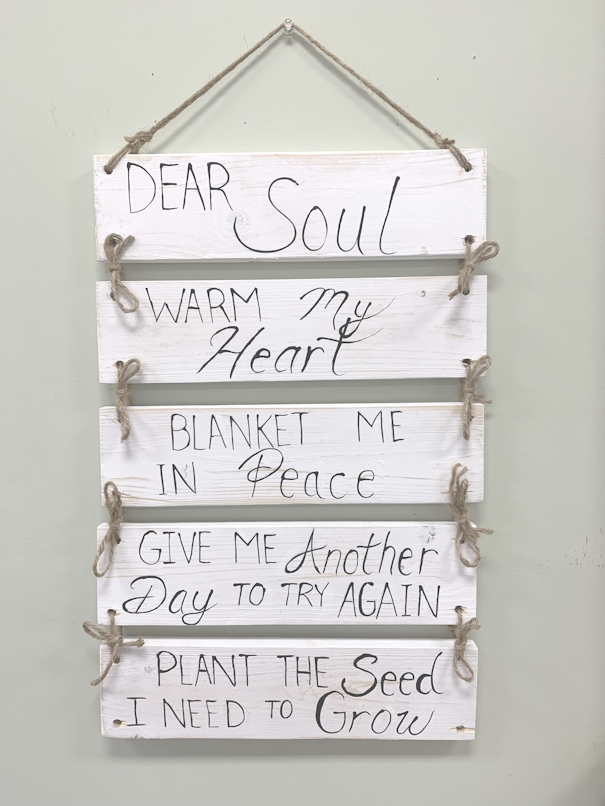 DEAR Soul
WARM My
Heart
BLANKET ME
IN Peace
GIVE ME Another
Day TO TRY AGAIN
PLANT THE Seed
I NEED TO Grow